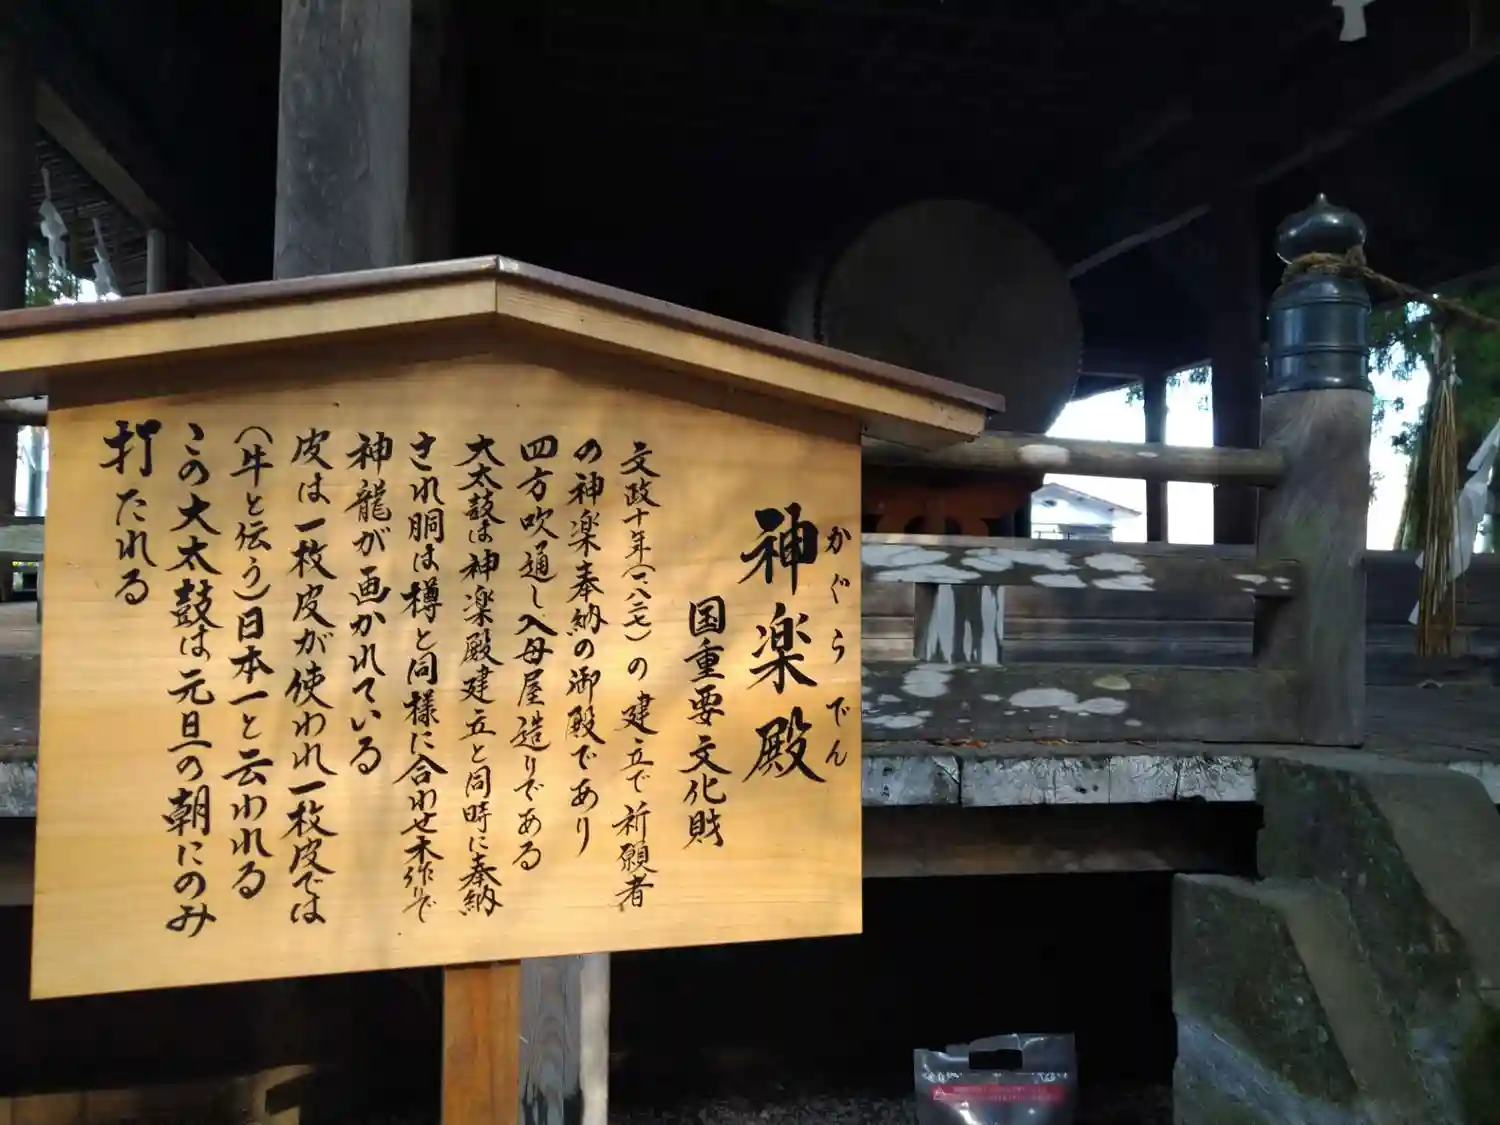 神楽殿
かぐらでん
国重要文化財
文政十年(一八二七)の建立で祈願者
の神楽奉納の御殿であり
四方吹通し入母屋造りである
大太鼓は神楽殿建立と同時に奉納
され胴は樽と同様に合わせ木作りで
神龍が画かれている
皮は一枚皮が使われ一枚皮では
(牛と伝う)日本一と云われる
この大太鼓は元旦の朝にのみ
打たれる